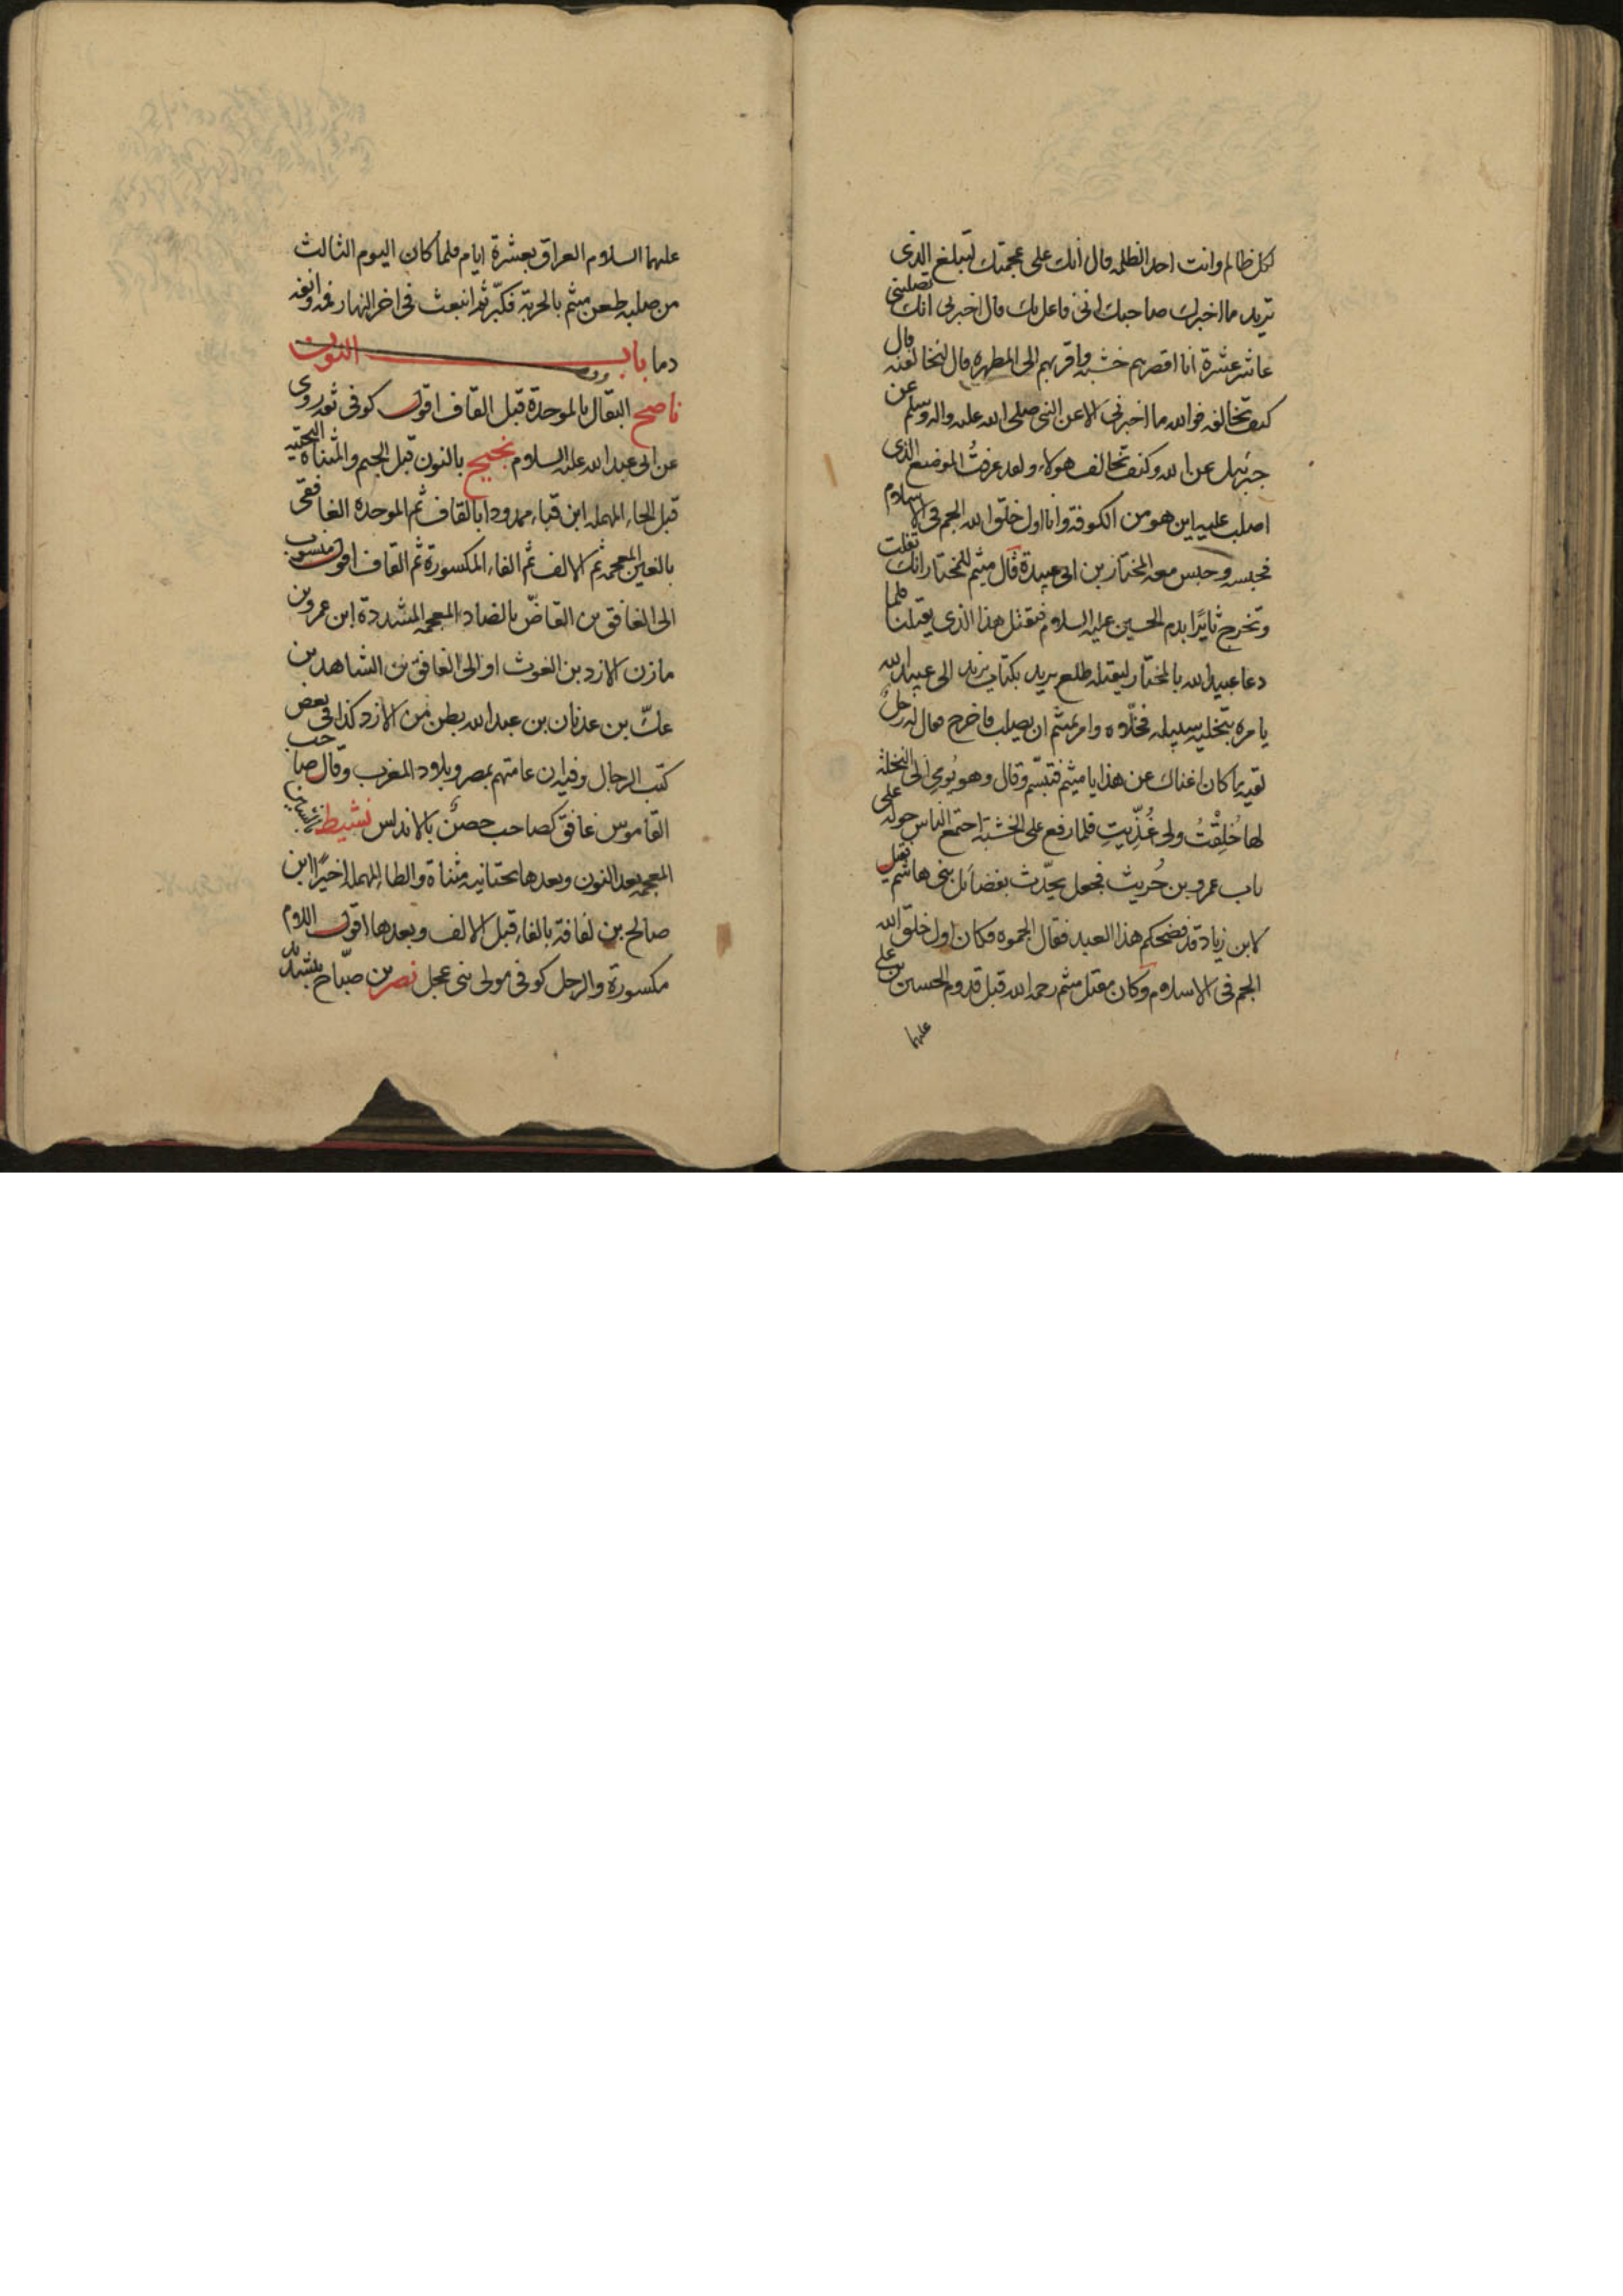 لكل ظالم وانت احد الظلمه قال انك على عجمتك لتبلغ الذى
تريد ما اخبرك صاحبك انى فاعل بك قال اخبرنى انك تصلبنى
عاشر عشرة انا اقصرهم خشبه واقربهم الى المطهره قال لنخالفنه قال
كيف تخالفه فوالله ما اخبرنى الا عن النبى صلى الله عليه واله وسلم عن
جبرئيل عن الله وكيف تخالف هولاء ولقد عرفتُ الموضع الذى
اصلب عليه اين هو من الكوفة وانا اول خلق الله الجم فى الاسلام
فحبسه وحبس معه المختار بن ابى عبيدة قال ميثم للمختار انك تفلت
وتخرج ثايرًا بدم الحسين عليه السلام فتقتل هذا الذى يقتلنا فلما
دعا عبيد الله بالمختار ليقتله طلع بريد بكتاب يزيد الى عبيد الله
يامره بتخليه سبيله فخلّاه وامر بميثم ان يصلب فاخرج فقال له رجلٌ
لقيه ما كان اغناك عن هذا يا ميثم فتبسّم وقال وهو يُومى الى النخلة
لها خُلِقْتُ ولى غُذِّيتِ فلما رفع على الخشبة اجتمع الناس حوله على
باب عمرو بن حُريث فجعل يحدّث بفضائل بنى هاشم فقيل
لابن زياد قد فضحكم هذا العبد فقال الجموه فكان اول خلق الله
الجم فى الاسلام وكان مقتل ميثم رحمه الله قبل قدوم الحسين بن على
عليهما
عليهما السلام العراق بعشرة ايام فلما كان اليوم الثالث
من صلبه طعن ميثم بالحربة فكبّر ثم انبعث فى اخر النهار فمه وانفه
دما باب النون
ناصح البقال بالموحدة قبل القاف اقول كوفى ثقه روى
عن ابى عبد الله عليه السلام نجيح بالنون قبل الجيم والمثناة التحتيه
قبل الحاء المهمله ابن قباء ممدودا بالقاف ثم الموحده الغافقى
بالغين المعجمه ثم الالف ثم الفاء المكسورة ثم القاف اقول منسوب
الى الغافق بن القاضّ بالضاد المعجمه المشددة ابن عمرو بن
مازن الازد بن الغوث او الى الغافق بن الشاهد بن
عكّ بن عدنان بن عبد الله بطن من الازد كذا فى بعض
كتب الرجال وفيه ان عامتهم بمصر وبلاد المغرب وقال صاحب
القاموس غافق كصاحب حصنٌ بالاندلس نشيط بالشين
المعجمه بعد النون وبعدها تحتانيه مثناة والطاء المهمله اخيرًا ابن
صالح بن لفافة بالفاء قبل الالف وبعدها اقول اللام
مكسورة والرجل كوفى مولى بنى عجل نصر بن صبّاح بتشديد